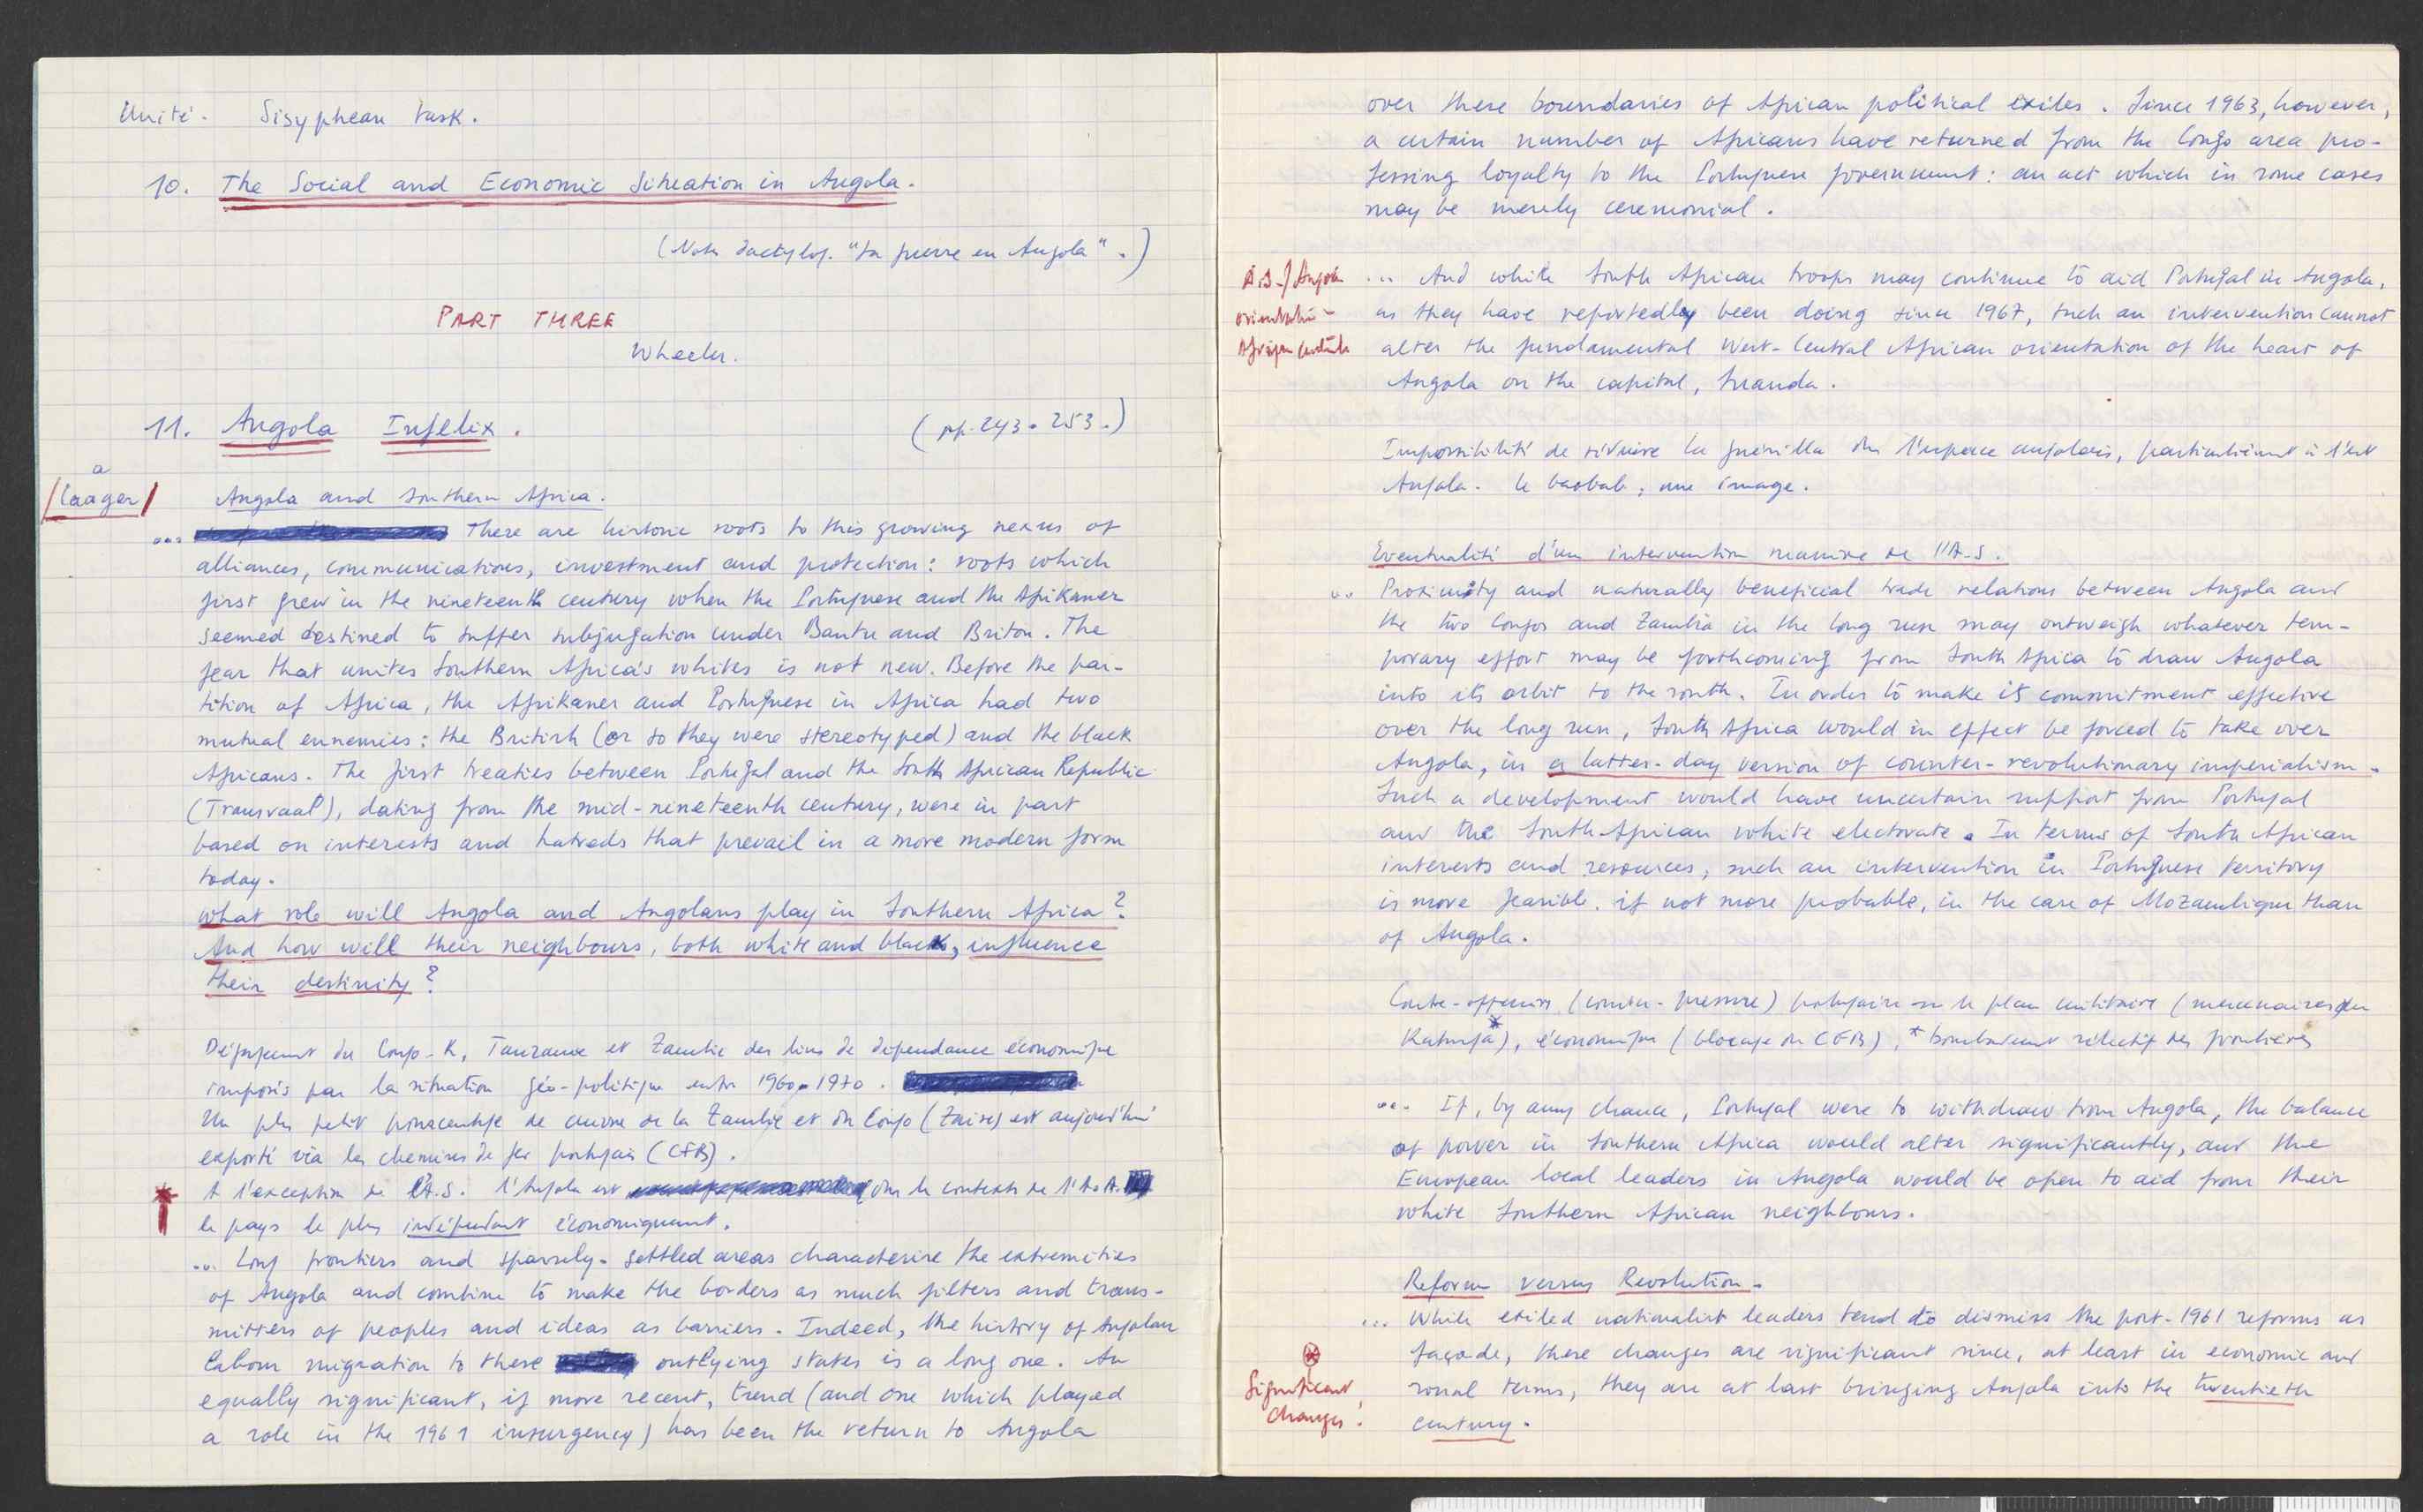 Unité. Sisyphean task.
10. The Social and Economic Situation in Angola.
(Note dactylog. "La guerre en Angola".)
PART THREE
Wheeler.
11. Angola Infelix. (pp. 243-253.)
a
/laager/
Angola and Southern Africa.
... There are historic roots to this growing nexus of
alliances, communications, investment and protection: roots which
first grew in the nineteenth century when the Portuguese and the Afrikaner
seemed destined to suffer subjugation under Bantu and Briton. The
fear that unites Southern Africa's whites is not new. Before the par-
tition of Africa, the Afrikaner and Portuguese in Africa had two
mutual ennemies: the British (or so they were stereotyped) and the black
Africans. The first treaties between Portugal and the South African Republic
(Transvaal), dating from the mid-nineteenth century, were in part
based on interests and hatreds that prevail in a more modern form
today.
What role will Angola and Angolans play in Southern Africa?
And how will their neighbours, both white and black, influence
their destinity?
Dégagement du Congo-K, Tanzanie et Zambie des liens de dépendance économique
imposés par la situation géo-politique entre 1960-1970.
Un plus petit pourcentage de cuivre de la Zambie et du Congo (Zaïre) est aujourd'hui
exporté via les chemins de fer portugais (CFB).
A l'exception de l'A.S. l'Angola est dans le contexte de l'A.A.
le pays le plus indépendant économiquement.
... Long frontiers and sparsely-settled areas characterise the extremities
of Angola and combine to make the borders as much filters and trans-
mitters of peoples and ideas as barriers. Indeed, the history of Angolan
labour migration to these outlying states is a long one. An
equally significant, if more recent, trend (and one which played
a role in the 1961 insurgency) has been the return to Angola
over these boundaries of African political exiles. Since 1963, however,
a certain number of Africans have returned from the Congo area pro-
fessing loyalty to the Portuguese government: an act which in some cases
may be merely ceremonial.
A.S./Angola
orientation
Afrique centrale
... And while South African troops may continue to aid Portugal in Angola,
as they have reportedly been doing since 1967, such an intervention cannot
alter the fundamental West-Central African orientation of the heart of
Angola on the capital, Luanda.
Impossibilité de réduire la guérilla ds l'espace angolais, particulièrement à l'est
Angola. Le baobab, une image.
Eventualité d'un intervention massive de l'A.S.
... Proximity and naturally beneficial trade relations between Angola and
the two Congos and Zambia in the long run may outweigh whatever tem-
porary effort may be forthcoming from South Africa to draw Angola
into its orbit to the south. In order to make its commitment effective
over the long run, South Africa would in effect be forced to take over
Angola, in a latter-day version of counter-revolutionary imperialism.
Such a development would have uncertain support from Portugal
and the South African white electorate. In terms of South African
interests and resources, such an intervention in Portuguese territory
is more feasible, if not more probable, in the case of Mozambique than
of Angola.
Contre-offensive (contre-pressure) portugaise sur le plan militaire (mercenaires du
Katanga*), économique (blocage du CFB), * bombardement sélectif des frontières
... If, by any chance, Portugal were to withdraw from Angola, the balance
of power in Southern Africa would alter significantly, and the
European local leaders in Angola would be open to aid from their
white Southern African neighbours.
Reform versus Revolution.
... While exiled nationalist leaders tend to dismiss the post-1961 reforms as
façade, these changes are significant since, at least in economic and
Significant
changes!
social terms, they are at last bringing Angola into the twentieth
century.